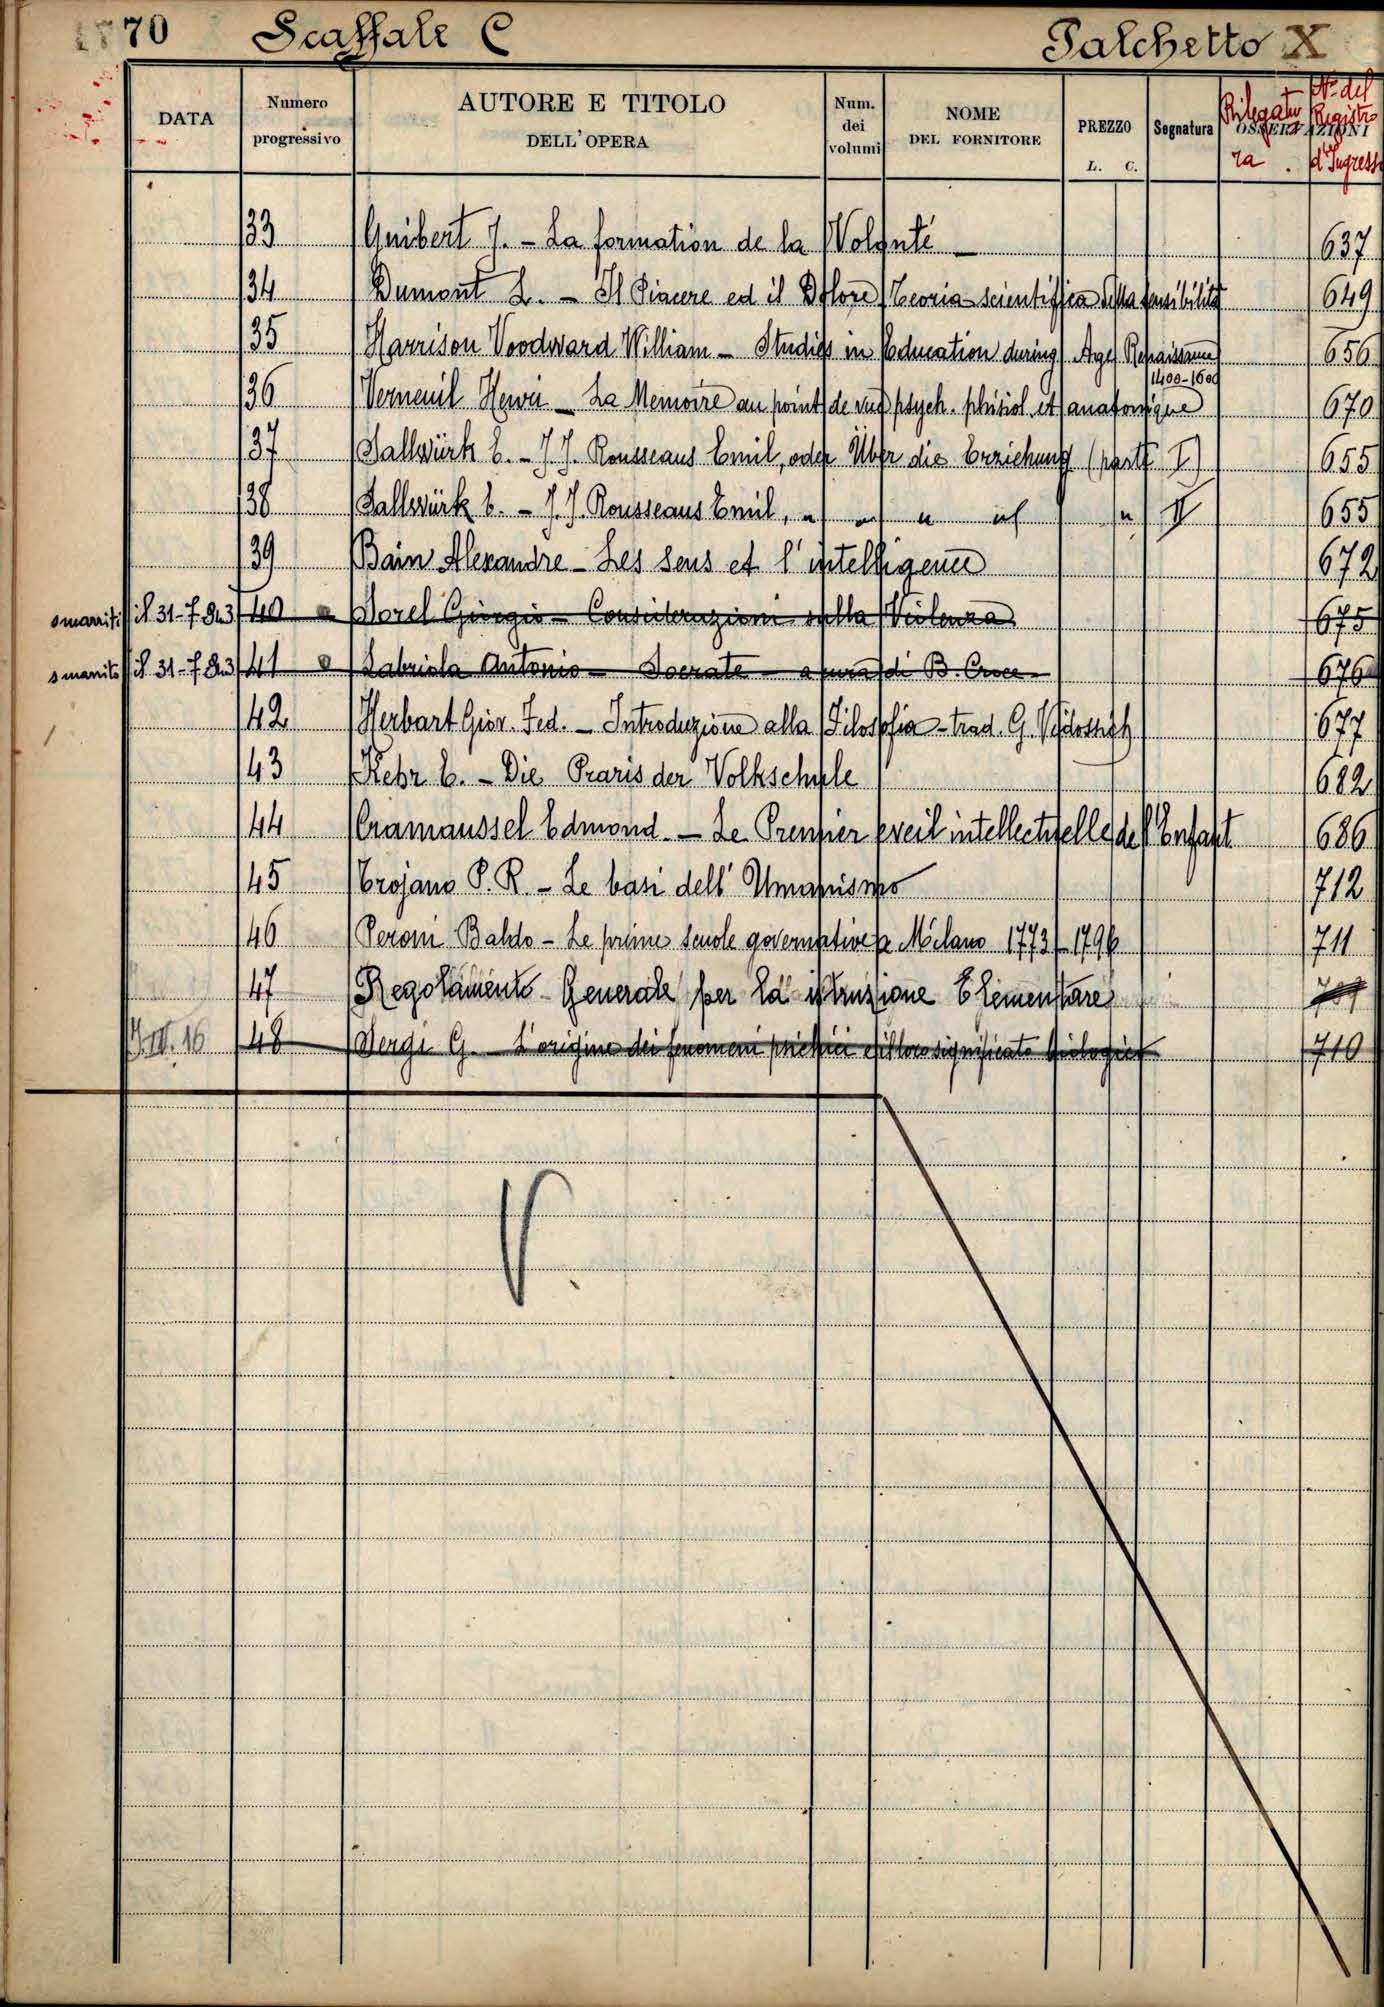 70 Scaffale C Palchetto X
DATA Numero progressivo AUTORE E TITOLO DELL'OPERA Num. dei volumi NOME DEL FORNITORE PREZZO L. C. Segnatura OSSERVAZIONI Rilegatura. N.º del Registro d'Ingresso
33 Guibert J. - La formation de la Volonté 637
34 Dumont L. - Il Piacere ed il Dolore Teoria scientifica della sensibilità 649
35 Harrison Voodward William - Studies in Education during Age Renaissance 1400-1600 656
36 Verneuil Henri - La Memoire au point de vue psych. phisiol. et anatomique 670
37 Sallwürk E. - J. J. Rousseaus Emil, oder Über die Erziehung (parte I) 655
38 Sallwürk E. - J. J. Rousseaus Emil, " " " " " II 655
39 Bain Alexandre - Les sens et l'intelligence 672
smarriti il 31-7-843 40 Sorel Giorgio - Considerazioni sulla Violenza 675
smarrito il 31-7-843 41 Labriola Antonio - Socrate - a cura di B. Croce 676
42 Herbart Giov. Fed. - Introduzione alla Filosofia - trad. G. Vidossich 677
43 Kehr C. - Die Praxis der Volkschule 682
44 Cramaussel Edmond. - Le Premier eveil intellectuelle de l'Enfant 686
45 Trojano P. R. - Le basi dell'Umanismo 712
46 Peroni Baldo - Le prime scuole governative a Milano 1773-1796 711
47 Regolamento Generale per la istruzione Elementare 709
48 Sergi G. - L'origine dei fenomeni psichici e il loro significato biologico 710
V.